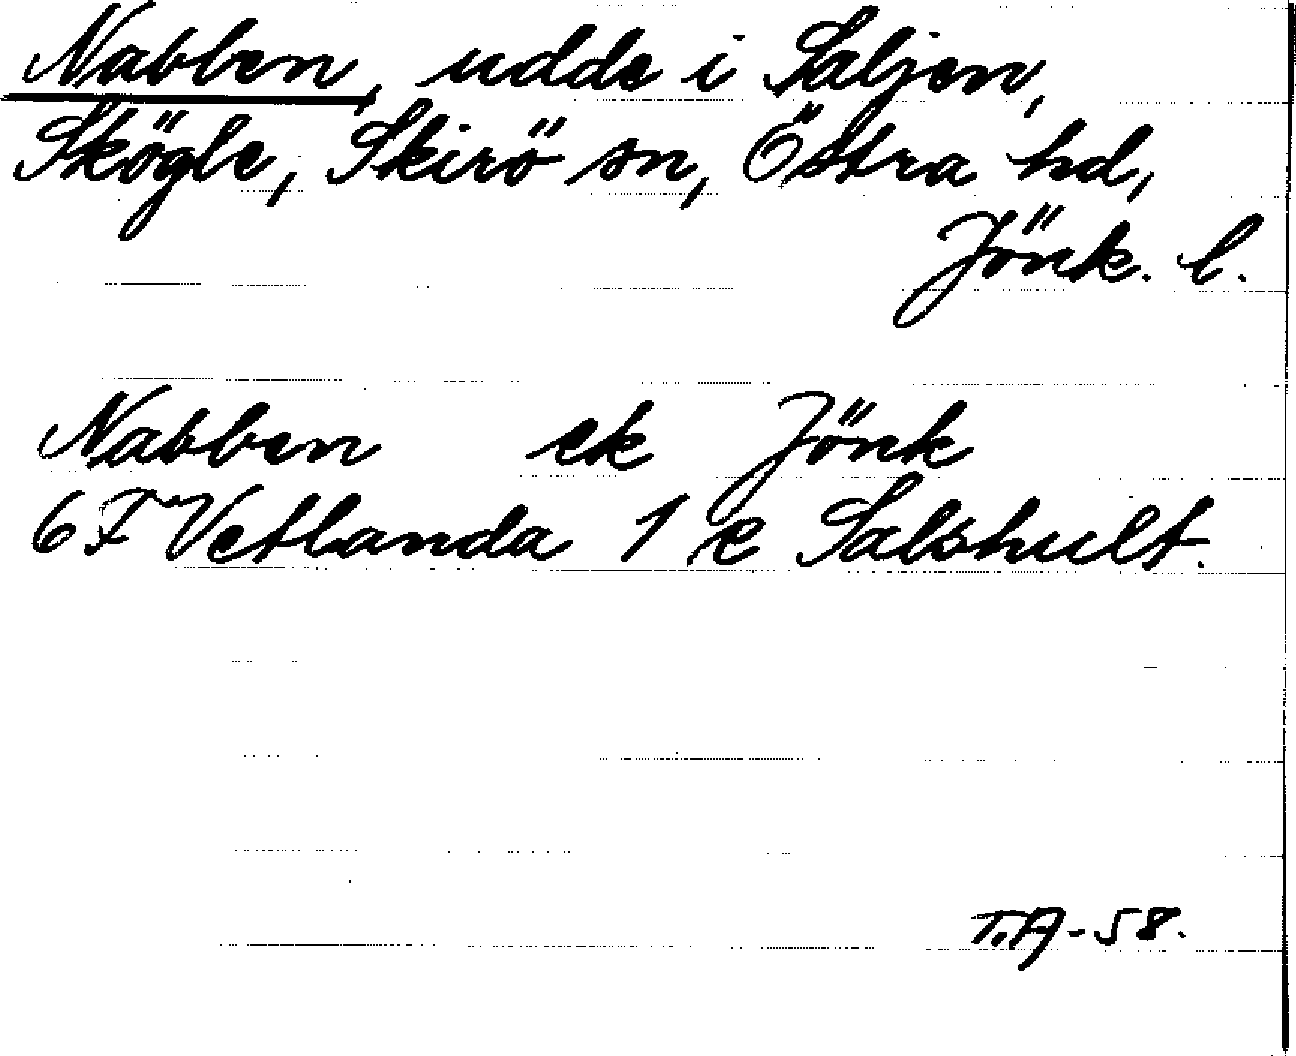 Nabben, udde i Saljen,
Skögle, Skirö sn, Östra hd,
Jönk. l.
Nabben ek Jönk
6 F Vetlanda 1 e Salshult.
T.A-58.